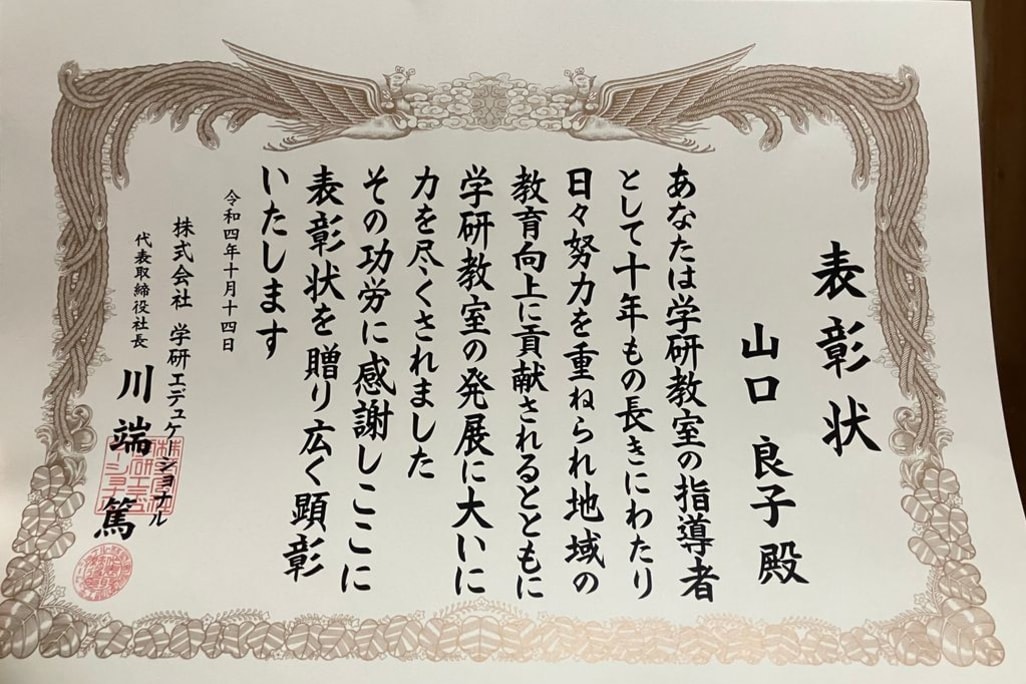 表彰状
山口 良子 殿
あなたは学研教室の指導者
として十年もの長きにわたり
日々努力を重ねられ地域の
教育向上に貢献されるとともに
学研教室の発展に大いに
力を尽くされました
その功労に感謝しここに
表彰状を贈り広く顕彰
いたします
令和四年十月十四日
株式会社 学研エデュケーショナル
代表取締役社長 川端 篤